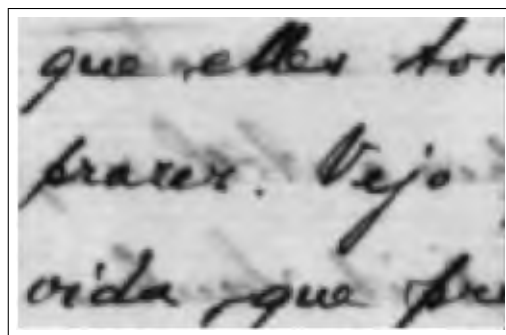 que elles
prazer. Vejo
vida que